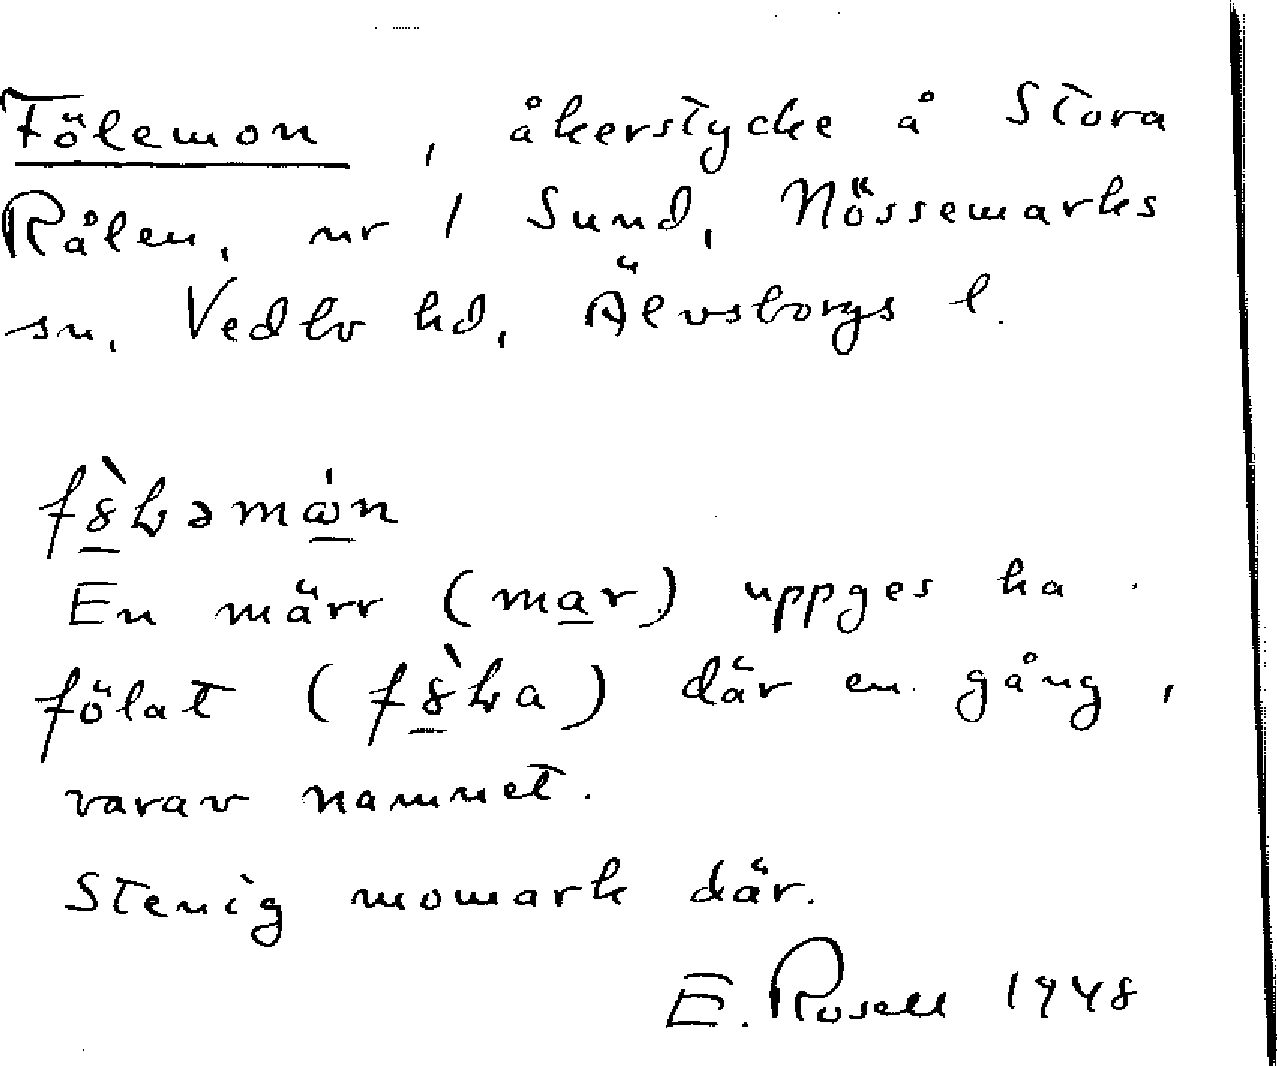 Fölemon, åkerstycke å Stora
Rålen, nr 1 Sund, Nössemarks
sn, Vedbo hd, Älvsborgs l.
fȣ̀ɫəmὼn
En märr (mar) uppges ha
fölat (fȣ̀ɫa) där en gång,
varav namnet.
Stenig momark där.
E. Rosell 1948